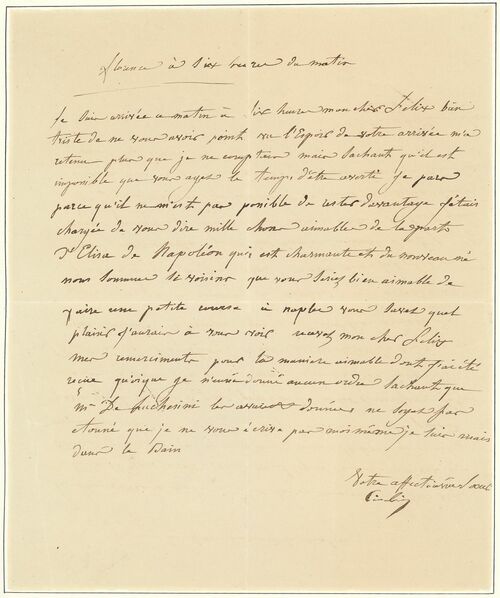 florence à six heures du matin
je suis arrivée ce matin à six heure mon cher Félix bien
triste de ne vous avoir point vu l'Espoir de votre arrivée m'a
retenue plus que je ne comptais mais sachant qu'il est
imposible que vous ayez le temps d'être avertit je pars
parce qu'il ne m'est pas posible de rester davantage j'étais
chargée de vous dire mille chose aimable de la part
d'Elisa de Napoléon qui est charmante et du nouveau né
nous sommes si voisins que vous seriez bien aimable de
faire une petite course à naples vous savez quel
plaisir j'aurais à vous voir recevez mon cher Félix
mes remerciments pour la manière aimable dont j'ai été
recue quoique je n'eusse donné aucun ordre sachant que
Mr De Luchesini les avait données ne soyez pas
étonné que je ne vous écrive pas moi même je suis mais
dans le Bain
Votre affectionnée sœur